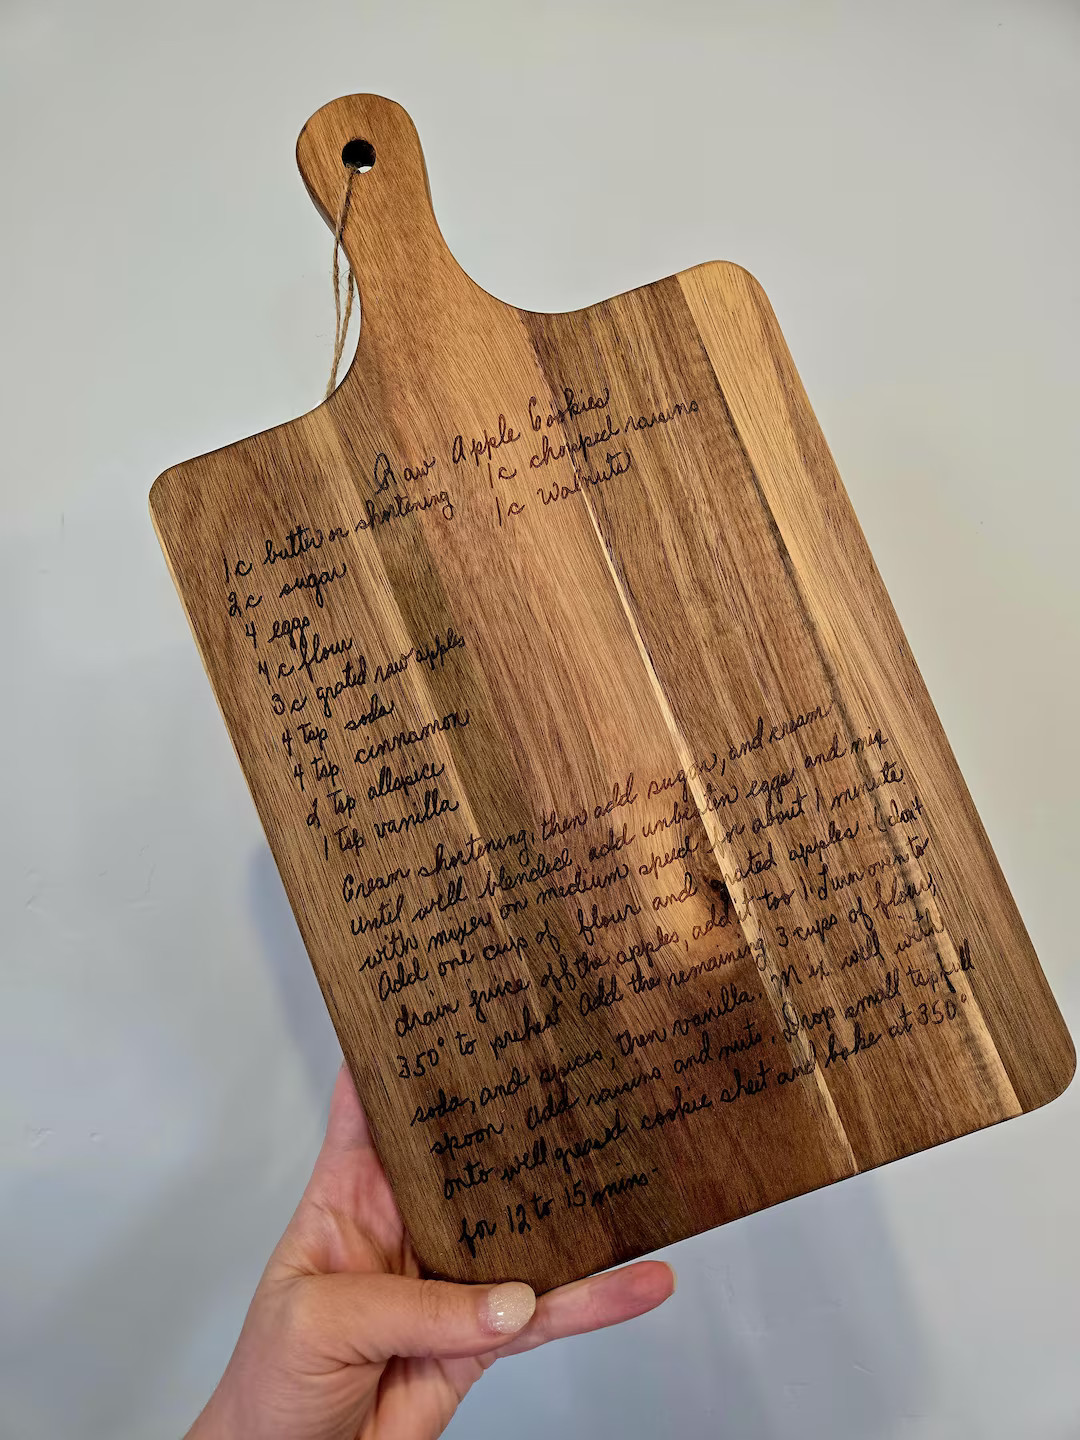 Raw Apple Cookies
1c butter or shortening
2c sugar
4 eggs
4c flour
3c grated raw apples
4 tsp soda
4 tsp cinnamon
2 tsp allspice
1 tsp vanilla
1c chopped raisins
1c walnuts
Cream shortening, then add sugar, and cream
until well blended, add unbeaten eggs and mix
with mixer on medium speed for about 1 minute.
Add one cup of flour and grated apples. (don't
drain juice off the apples, add it too). Turn oven to
350° to preheat. Add the remaining 3 cups of flour,
soda, and spices, then vanilla. Mix well with
spoon. Add raisins and nuts. Drop small tspfull
onto well greased cookie sheet and bake at 350°
for 12 to 15 mins.